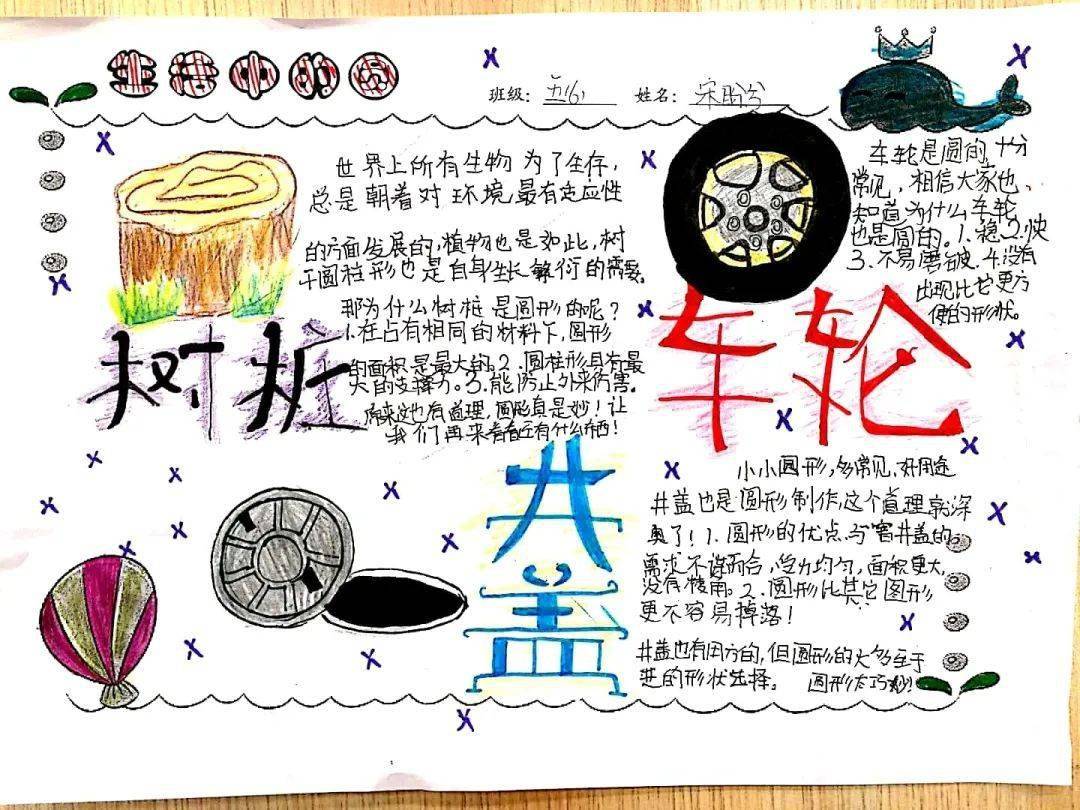 生活中的圆
班级: 五(6) 姓名: 宋盼兮
世界上所有生物为了生存,
总是朝着对环境最有适应性
的方面发展的,植物也是如此,树
干圆柱形也是自身生长、繁衍的需要。
那为什么树桩是圆形的呢?
1.在占有相同的材料下,圆形
的面积是最大的。2.圆柱形具有最
大的支撑力。3.能防止外来伤害。
原来这也有道理,圆形真是妙!让
我们再来看看还有什么东西!
树桩
车轮是圆的,十分
常见,相信大家也
知道为什么车轮
也是圆的。1.稳2.快
3.不易磨破.4.没有
出现比它更方
便的形状。
车轮
井盖
小小圆形,多常见、好用途
井盖也是圆形制作,这个道理就深
奥了!1.圆形的优点与窨井盖的
需求不谋而合,受力均匀,面积更大,
没有棱角。2.圆形比其它图形
更不容易掉落!
井盖也有四方的,但圆形的大多至于
的形状选择。 圆形在巧妙!